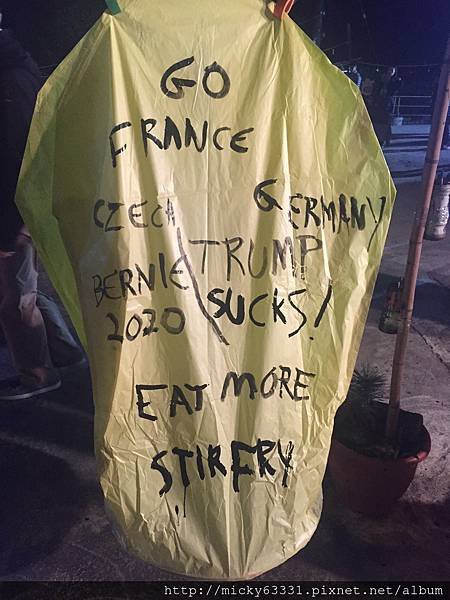 GO
FRANCE
CZECH GERMANY
BERNIE TRUMP
2020 SUCKS!
EAT MORE
STIRFRY
http://micky63331.pixnet.net/album